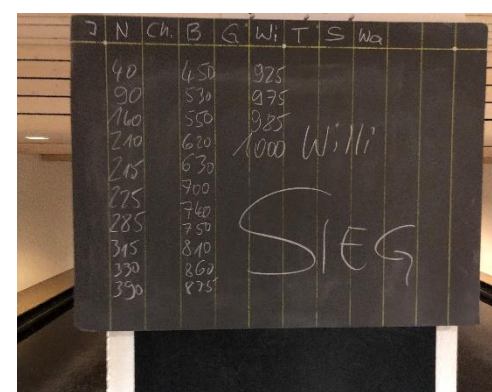 J N Ch. B G Wi T S Wa
40 450 925
90 530 975
160 550 985
210 620 1000 Willi
215 630
225 700
285 740
315 750
330 810
390 860
875
SIEG